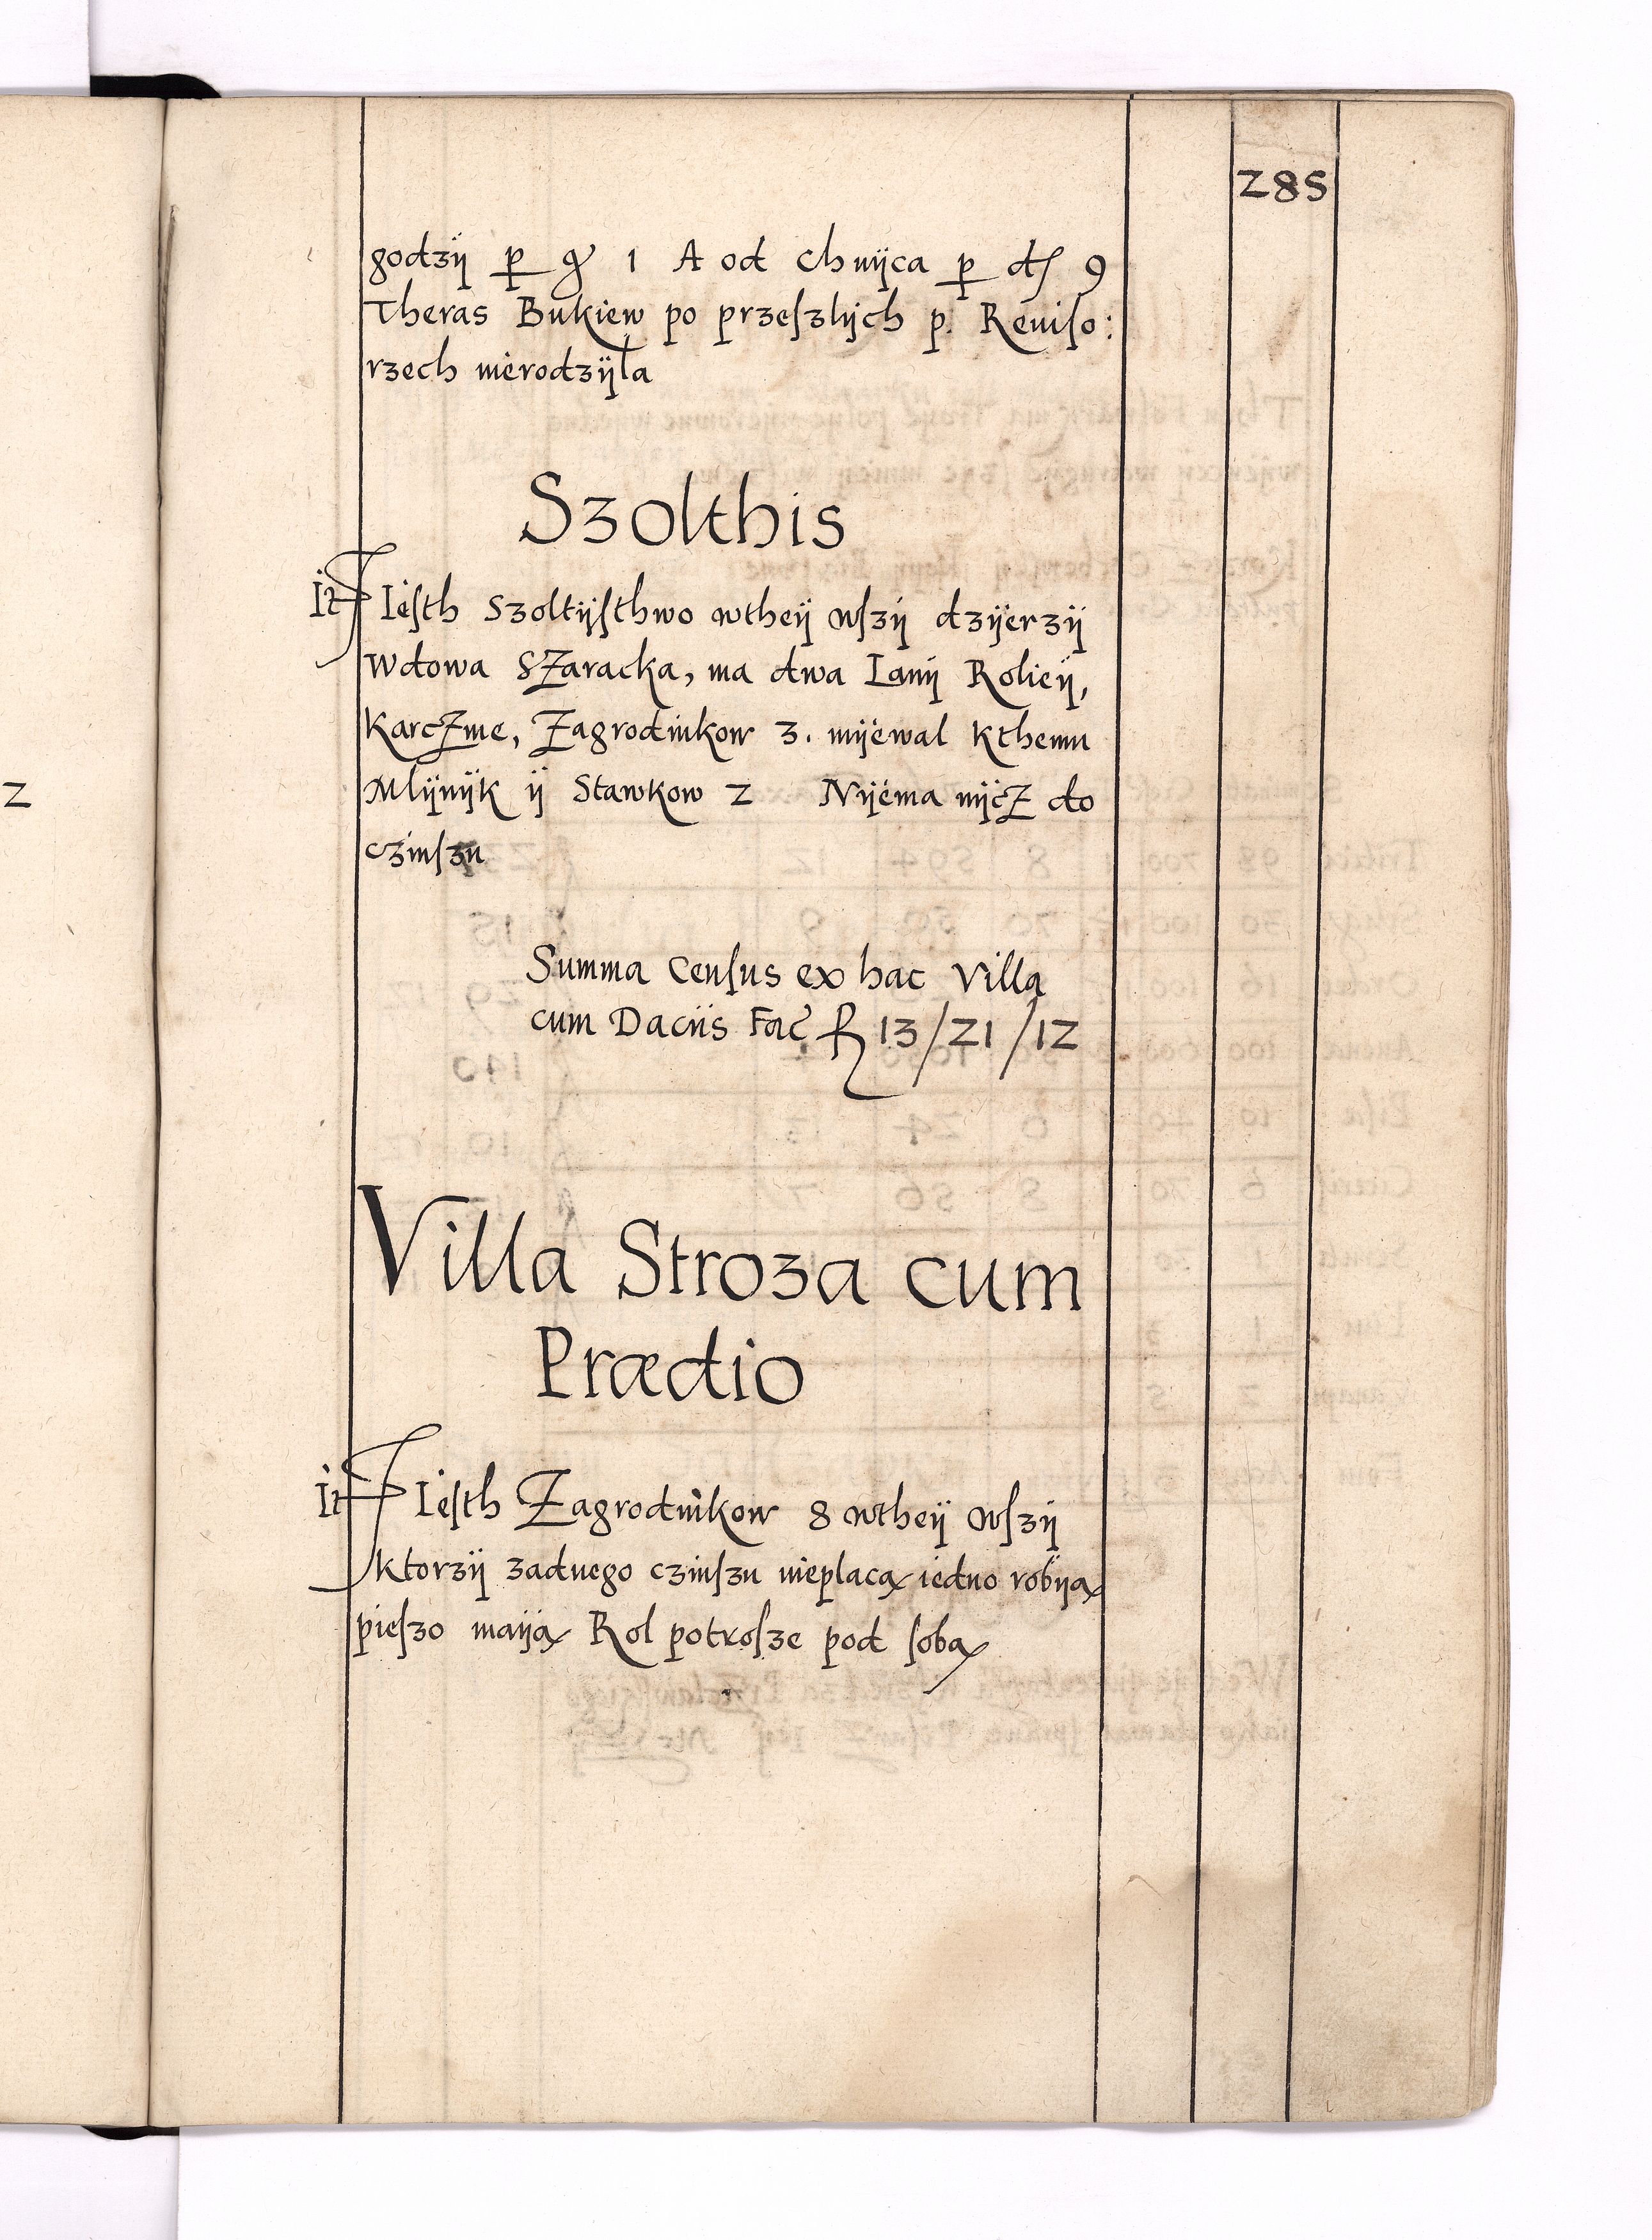 285
godzÿ p gr 1 A od chwÿca p d 9
Theras Bukiew po przeſzlÿch p. Reuiſo:
rzech nierodzÿła
Szolthis
It Ieſth Szoltÿſthwo wtheÿ wſzÿ dzÿerzÿ
Wdowa SZaracka, ma dwa Lanÿ Rolieÿ,
KarcZme, Zagrodnikow 3. mÿewal kthemu
Mlÿnÿk ÿ Stawkow 2 Nÿema nÿcZ do
czinſzu
Summa Cenſus ex hac Villa
cum Daciis Fac fl 13/21/12
Villa Stroza cum
Prædio
It Ieſth Zagrodnikow 8 wtheÿ wſzÿ
ktorzÿ zadnego czinſzu nieplacą iedno robÿą
pieſzo maÿą Rol potroſze pod ſobą
2